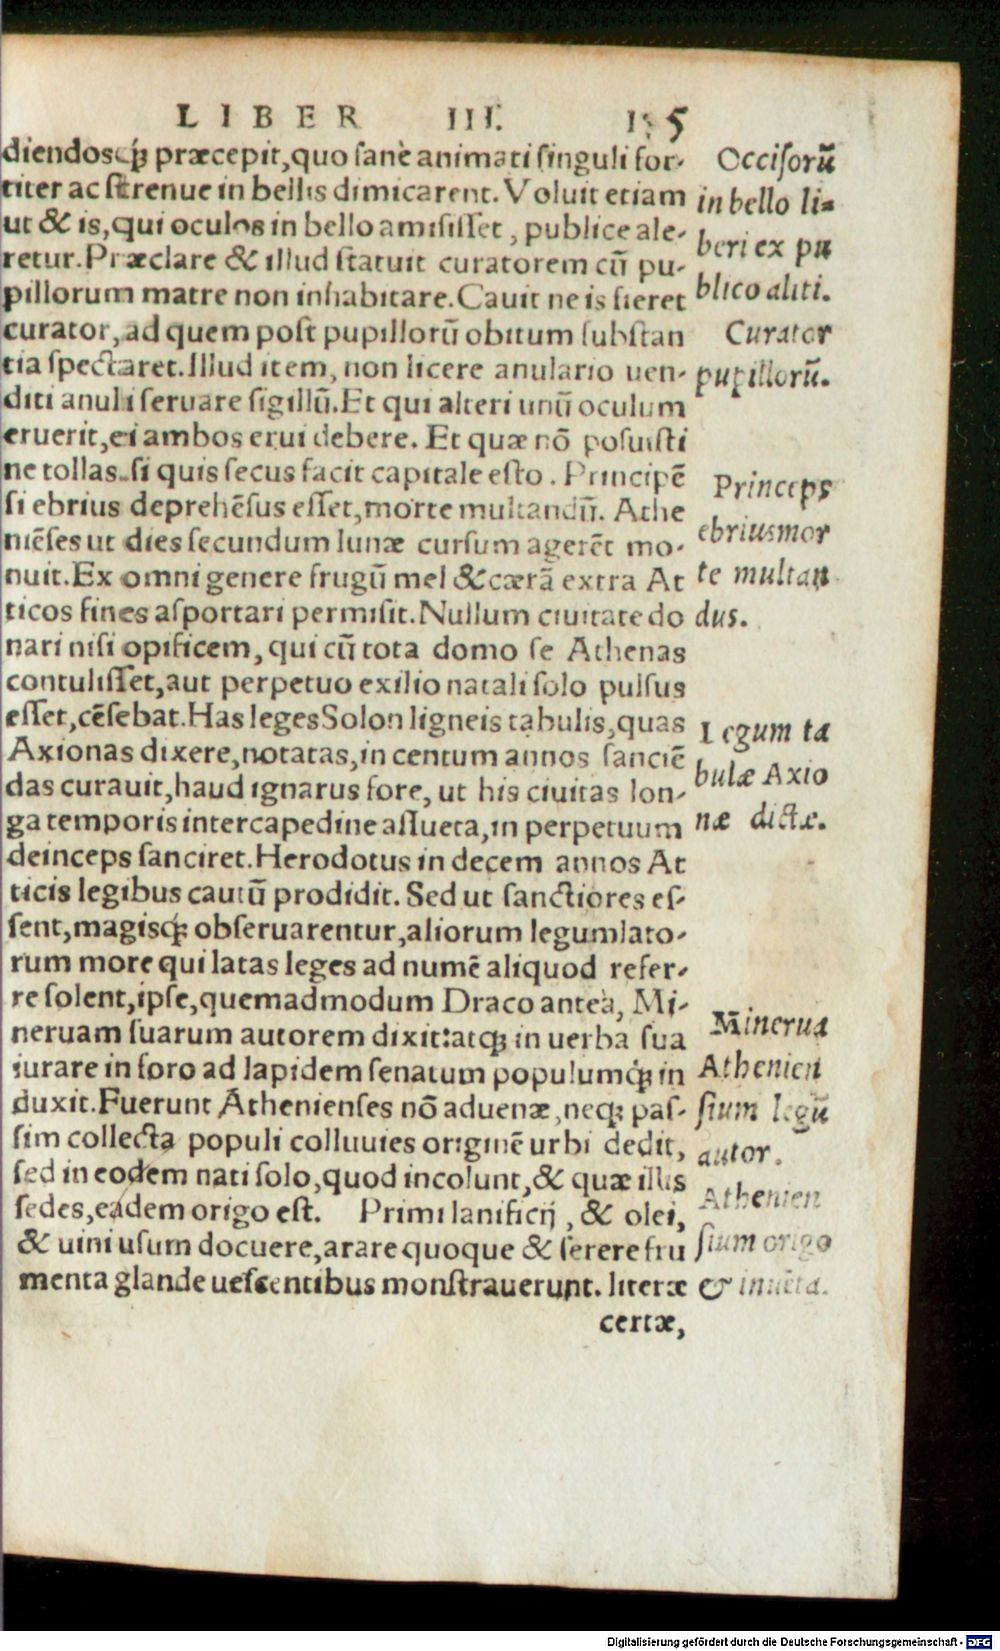 LIBER III. 155
diendosq́ꝫ præcepit, quo sanè animati singuli for-
titer ac strenue in bellis dimicarent. Voluit etiam
ut & is, qui oculos in bello amisisset, publice ale-
retur. Præclare & illud statuit curatorem cũ pu-
pillorum matre non inhabitare. Cauit ne is fieret
curator, ad quem post pupillorũ obitum substan
tia spectaret. Illud item, non licere anulario uen-
diti anuli seruare sigillũ. Et qui alteri unũ oculum
eruerit, ei ambos erui debere. Et quæ nõ posuisti
ne tollas. si quis secus facit capitale esto. Principẽ
si ebrius deprehẽsus esset, morte multandũ. Athe
niẽses ut dies secundum lunæ cursum agerẽt mo-
nuit. Ex omni genere frugũ mel & cærã extra At
ticos fines asportari permisit. Nullum ciuitate do
nari nisi opificem, qui cũ tota domo se Athenas
contulisset, aut perpetuo exilio natali solo pulsus
esset, cẽsebat. Has leges Solon ligneis tabulis, quas
Axionas dixere, notatas, in centum annos sanciẽ
das curauit, haud ignarus fore, ut his ciuitas lon-
ga temporis intercapedine assueta, in perpetuum
deinceps sanciret. Herodotus in decem annos At
ticis legibus cautũ prodidit. Sed ut sanctiores es-
sent, magisq́ꝫ obseruarentur, aliorum legumlato-
rum more qui latas leges ad numẽ aliquod refer-
re solent, ipse, quemadmodum Draco anteà, Mi-
neruam suarum autorem dixit: atqꝫ in uerba sua
iurare in foro ad lapidem senatum populumq́ꝫ in
duxit. Fuerunt Athenienses nõ aduenæ, neqꝫ pas-
sim collecta populi colluuies originẽ urbi dedit,
sed in eodem nati solo, quod incolunt, & quæ illis
sedes, eadem origo est. Primi lanificij, & olei,
& uini usum docuere, arare quoque & serere fru
menta glande uescentibus monstrauerunt. literæ
certæ,
Occisorũ
in bello li=
beri ex pu
blico aliti.
Curator
pupillorũ.
Princeps
ebrius mor
te multan
dus.
Legum ta
bulæ Axio
næ dictæ.
Minerua
Athenien
sium legũ
autor.
Athenien
sium origo
& inuẽta.
Digitalisierung gefördert durch die Deutsche Forschungsgemeinschaft - DFG